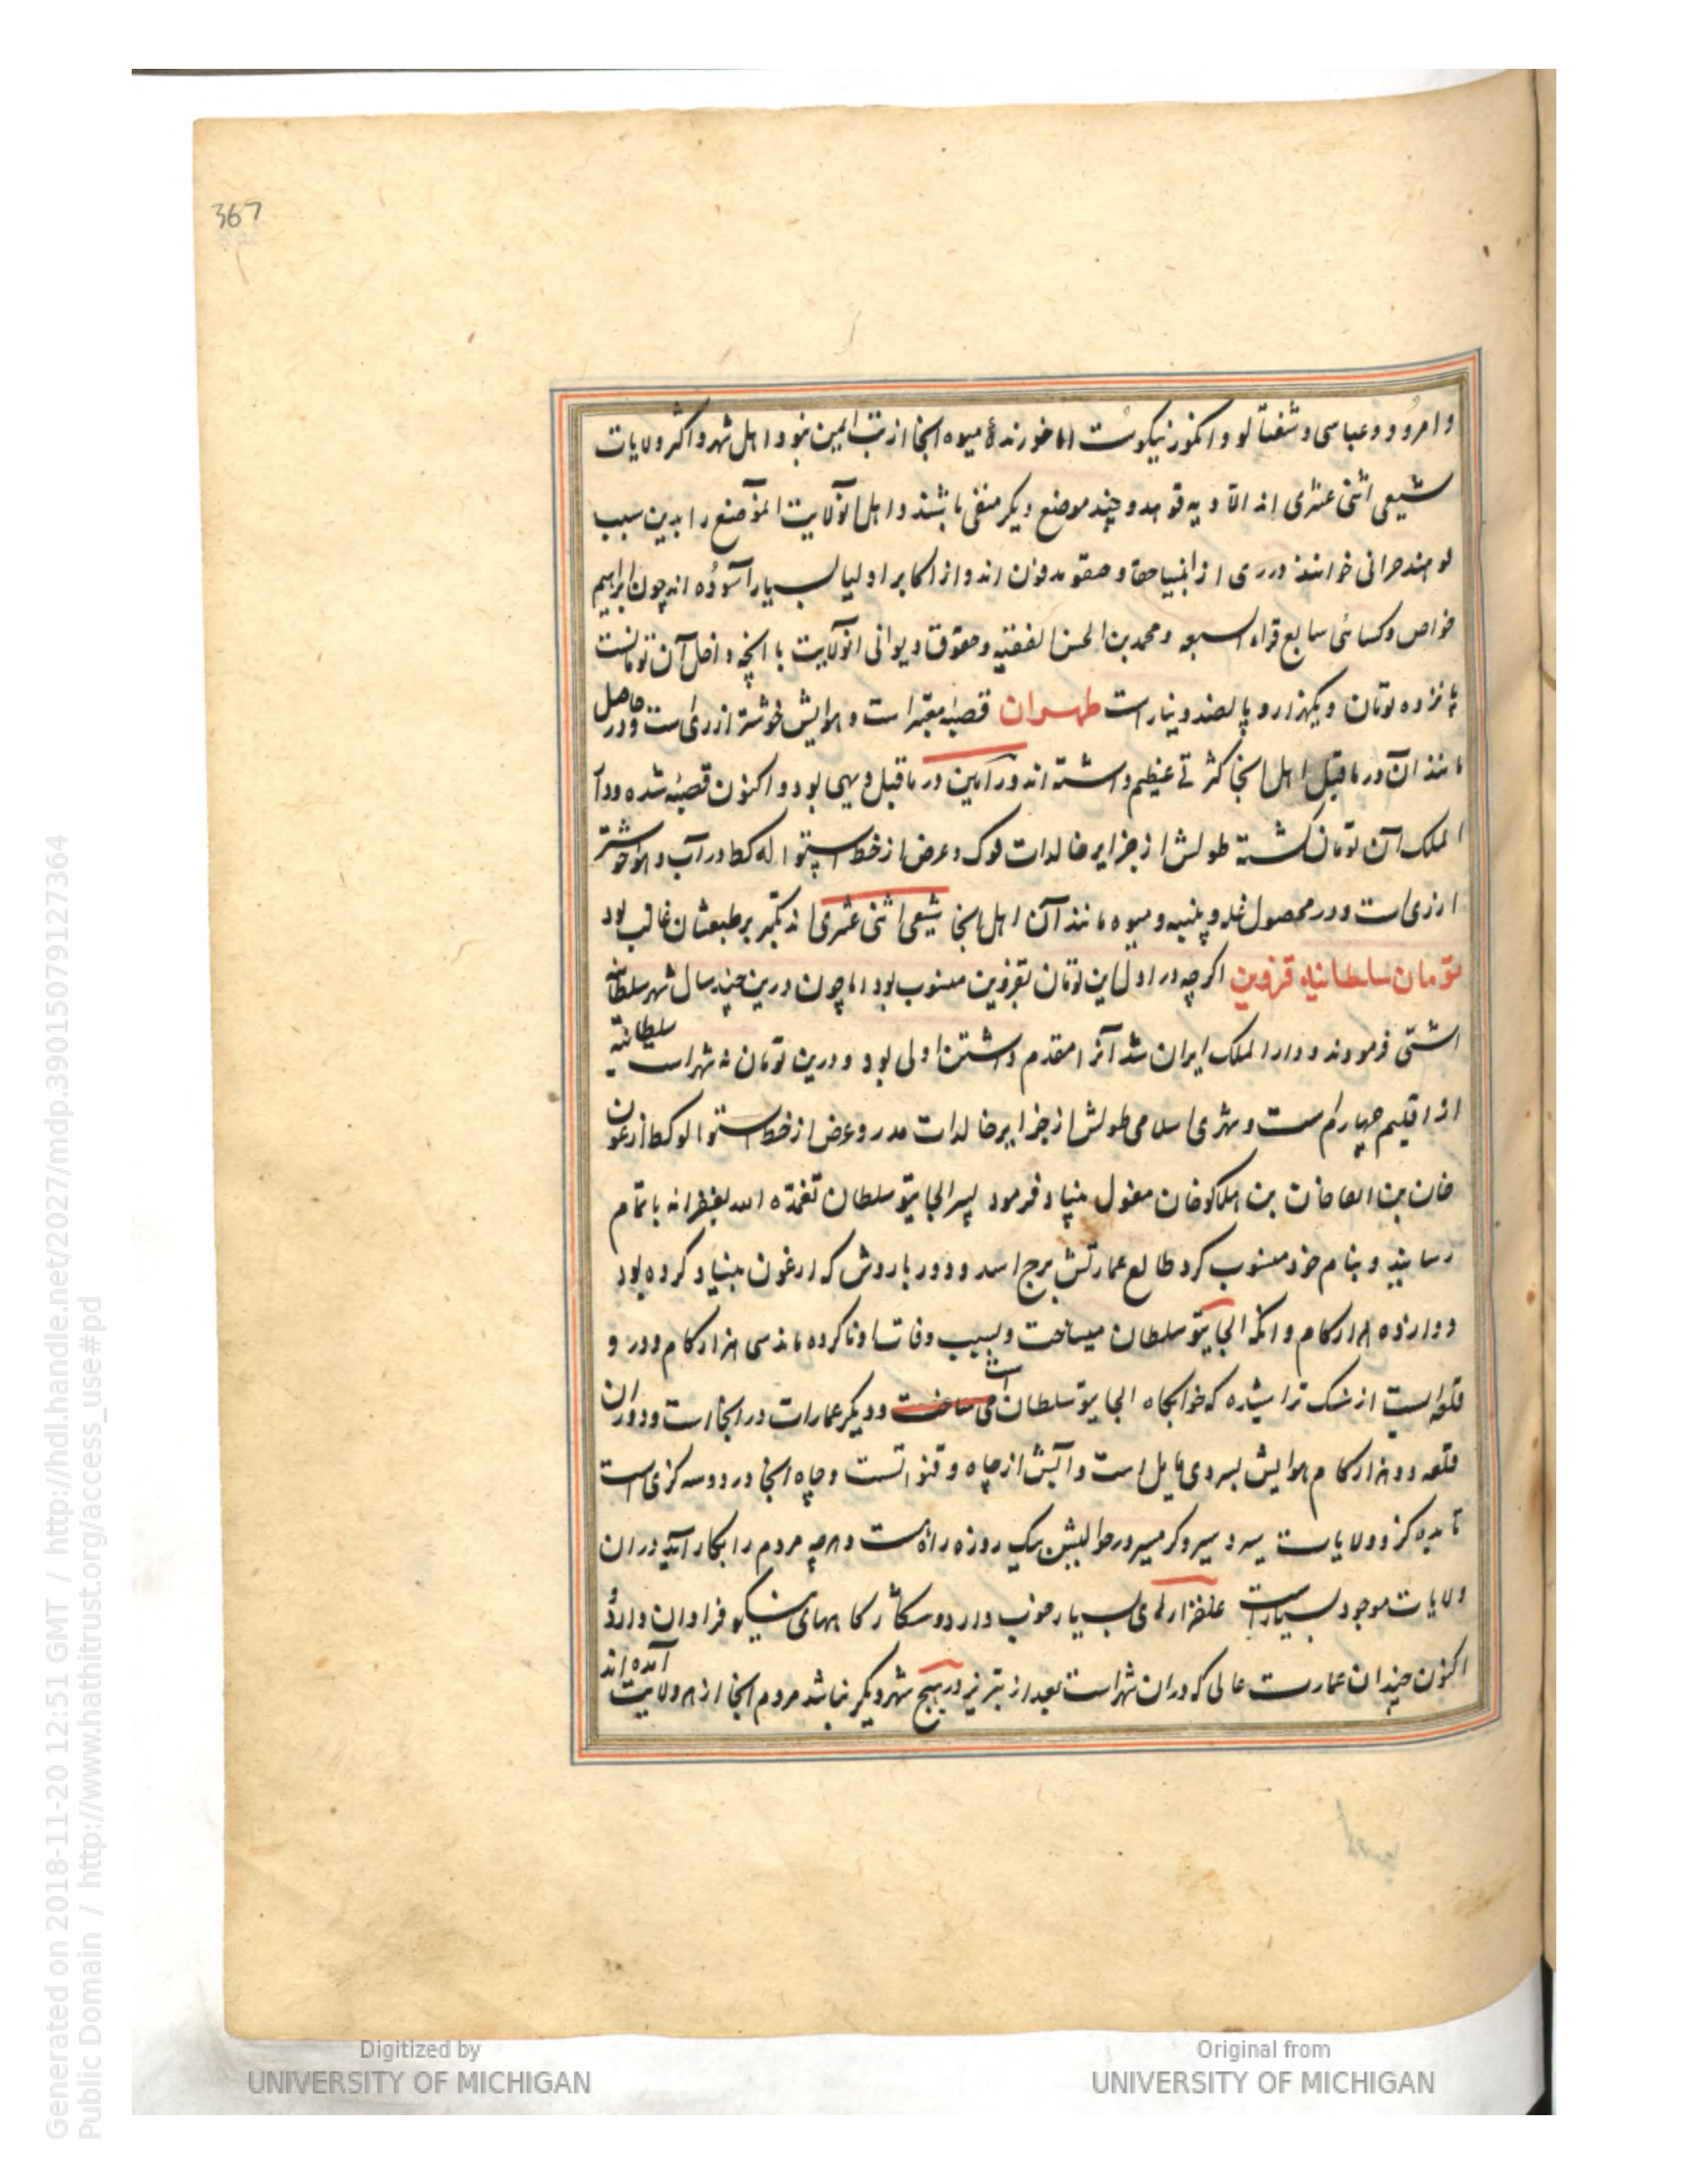 367
و امرود و عباسی و شفتالو و انگور نیکوست اما خورنده میوه انجا از تب ایمن نبود و اهل شهر و اکثر ولایات
شیعی اثنی عشری اند الا دیه قوهد و چند موضع دیگر حنفی باشند و اهل انولایت المواضع را بدین سبب
قوهندحرانی خوانند در ری از انبیا حقا و حقو مدفون اند و از اکابر اولیا بسیار آسوده اند چون ابراهیم
خواص و کسائی سابع قراء السبعه و محمد بن الحسن الفقیه و حقوق دیوانی انولایت با انچه داخل آن تومانست
پانزده تومان و یکهزار و پانصد دینار است طهران قصبه معتبر است و هوایش خوشتر از ری است و در حاصل
مانند آن و در ماقبل اهل انجا کثرتی عظیم داشته اند ورامین در ماقبل دیهی بود و اکنون قصبه شده و دار
الملک آن تومان گشته طولش از جزایر خالدات فوک و عرض از خط استوا له کط در آب و هوا خوشتر
از ری است و در محصول غله و پنبه و میوه مانند آن اهل انجا شیعی اثنی عشری اند تکبر بر طبعشان غالب بود
تومان سلطانیه قزوین اگر چه در اول این تومان بقزوین منسوب بود اما چون درین چند سال شهر سلطانیه
انشی فرمودند و دار الملک ایران شد آنرا مقدم داشتن اولی بود و درین تومان نه شهر است سلطانیه
از اقلیم چهارم است و شهری اسلامی طولش از جزایر خالدات مدر و عرض از خط استوا لو کط ارغون
خان بن ابقا خان بن هلاکو خان مغول بنیاد فرمود پسر الجایتو سلطان تغمده الله بغفرانه باتمام
رسانید و بنام خود منسوب کرد طالع عمارتش برج اسد و دور باروش که ارغون بنیاد کرده بود
دوازده هزار کام و انکه الجایتو سلطان میساخت و بسبب وفات او ناکرده ماند سی هزار کام و در و
قلعه ایست از سنک تراشیده که خوابگاه الجایتو سلطان است می ساخت و دیگر عمارات در انجا است و دور ان
قلعه دو هزار کام هوایش بسردی مایل است و آبش از چاه و قنواتست و چاه انجا در دو سه گزی است
تا بده گز و ولایات سردسیر و گرمسیر در حوالیش یک روزه راه است و هر چه مردم را بکار آید در ان
ولایات موجود بسیار است علفزارهای بسیار خوب دارد و شکارگاههای نیکو فراوان دارد و
اکنون چندان عمارت عالی که در ان شهر است بعد از تبریز در هیچ شهر دیگر نباشد مردم انجا از هر ولایت آمده اند
Digitized by
UNIVERSITY OF MICHIGAN
Original from
UNIVERSITY OF MICHIGAN
Generated on 2018-11-20 12:51 GMT / http://hdl.handle.net/2027/mdp.39015079127364
Public Domain / http://www.hathitrust.org/access_use#pd